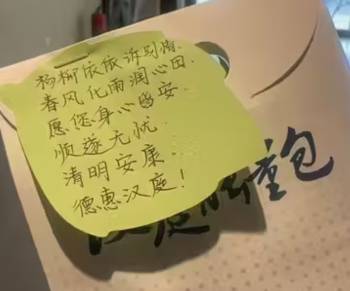 杨柳依依诉别情.
春风化雨润心田.
愿您身心皆安.
顺遂无忧.
清明安康.
德惠汉庭!
包